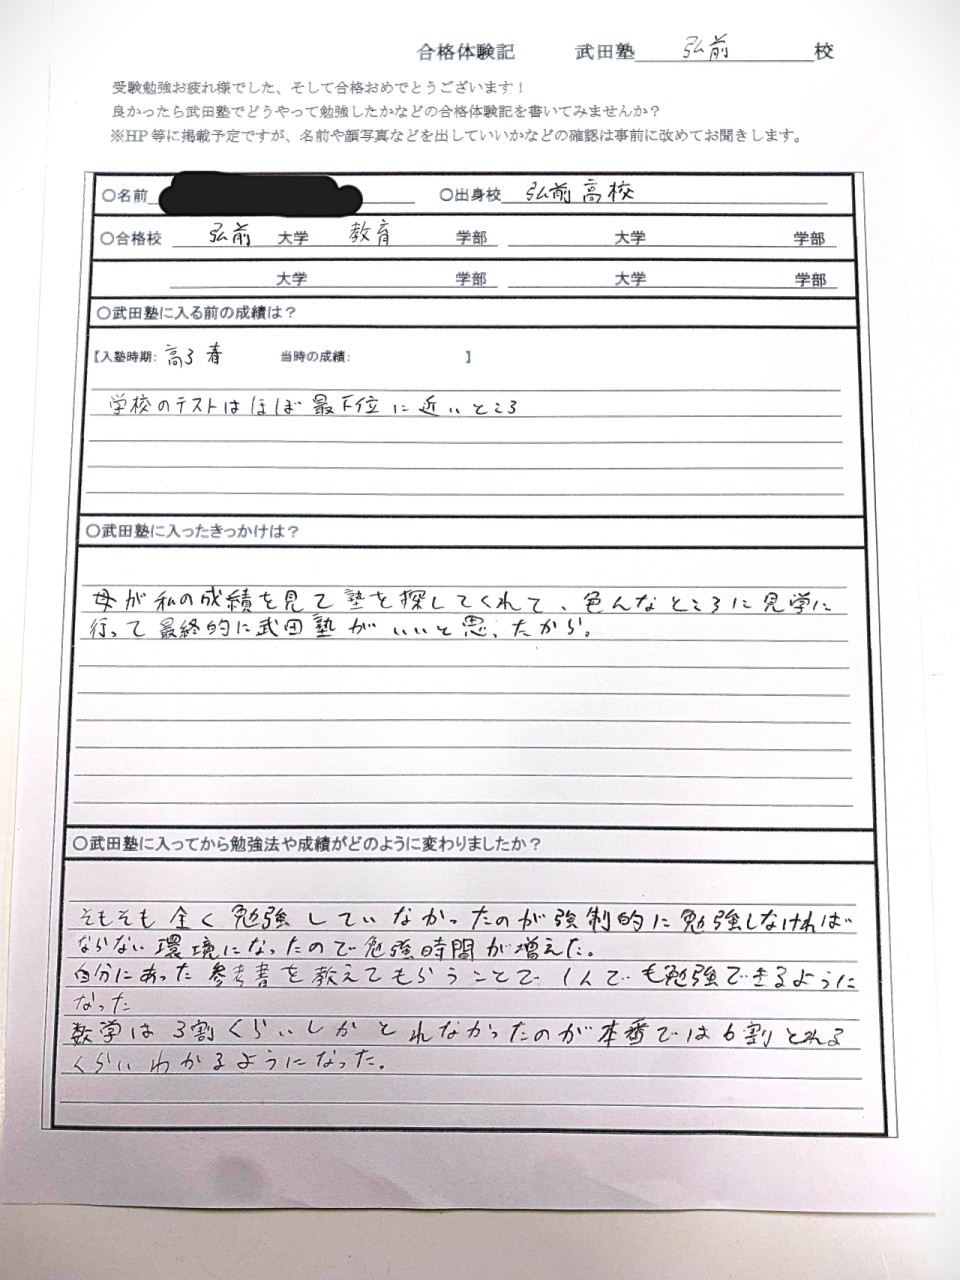 合格体験記 武田塾 弘前 校
受験勉強お疲れ様でした、そして合格おめでとうございます！
良かったら武田塾でどうやって勉強したかなどの合格体験記を書いてみませんか？
※HP等に掲載予定ですが、名前や顔写真などを出していいかなどの確認は事前に改めてお聞きします。
○名前 ○出身校 弘前高校
○合格校 弘前 大学 教育 学部 大学 学部
大学 学部 大学 学部
○武田塾に入る前の成績は？
【入塾時期: 高3 春 当時の成績: 】
学校のテストはほぼ最下位に近いところ
○武田塾に入ったきっかけは？
母が私の成績を見て塾を探してくれて、色んなところに見学に
行って最終的に武田塾がいいと思ったから。
○武田塾に入ってから勉強法や成績がどのように変わりましたか？
そもそも全く勉強していなかったのが強制的に勉強しなければ
ならない環境になったので勉強時間が増えた。
自分にあった参考書を教えてもらうことで1人でも勉強できるように
なった
数学は3割くらいしかとれなかったのが本番では6割とれる
くらいわかるようになった。